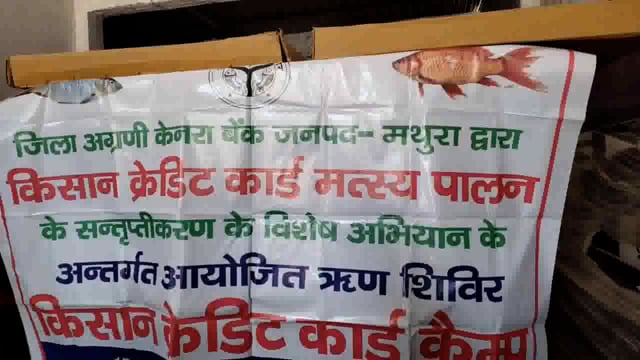 जिला अग्रणी केनरा बैंक जनपद- मथुरा द्वारा
किसान क्रेडिट कार्ड मत्स्य पालन
के सन्तृप्तीकरण के विशेष अभियान के
अन्तर्गत आयोजित ऋण शिविर
किसान क्रेडिट कार्ड कैम्प